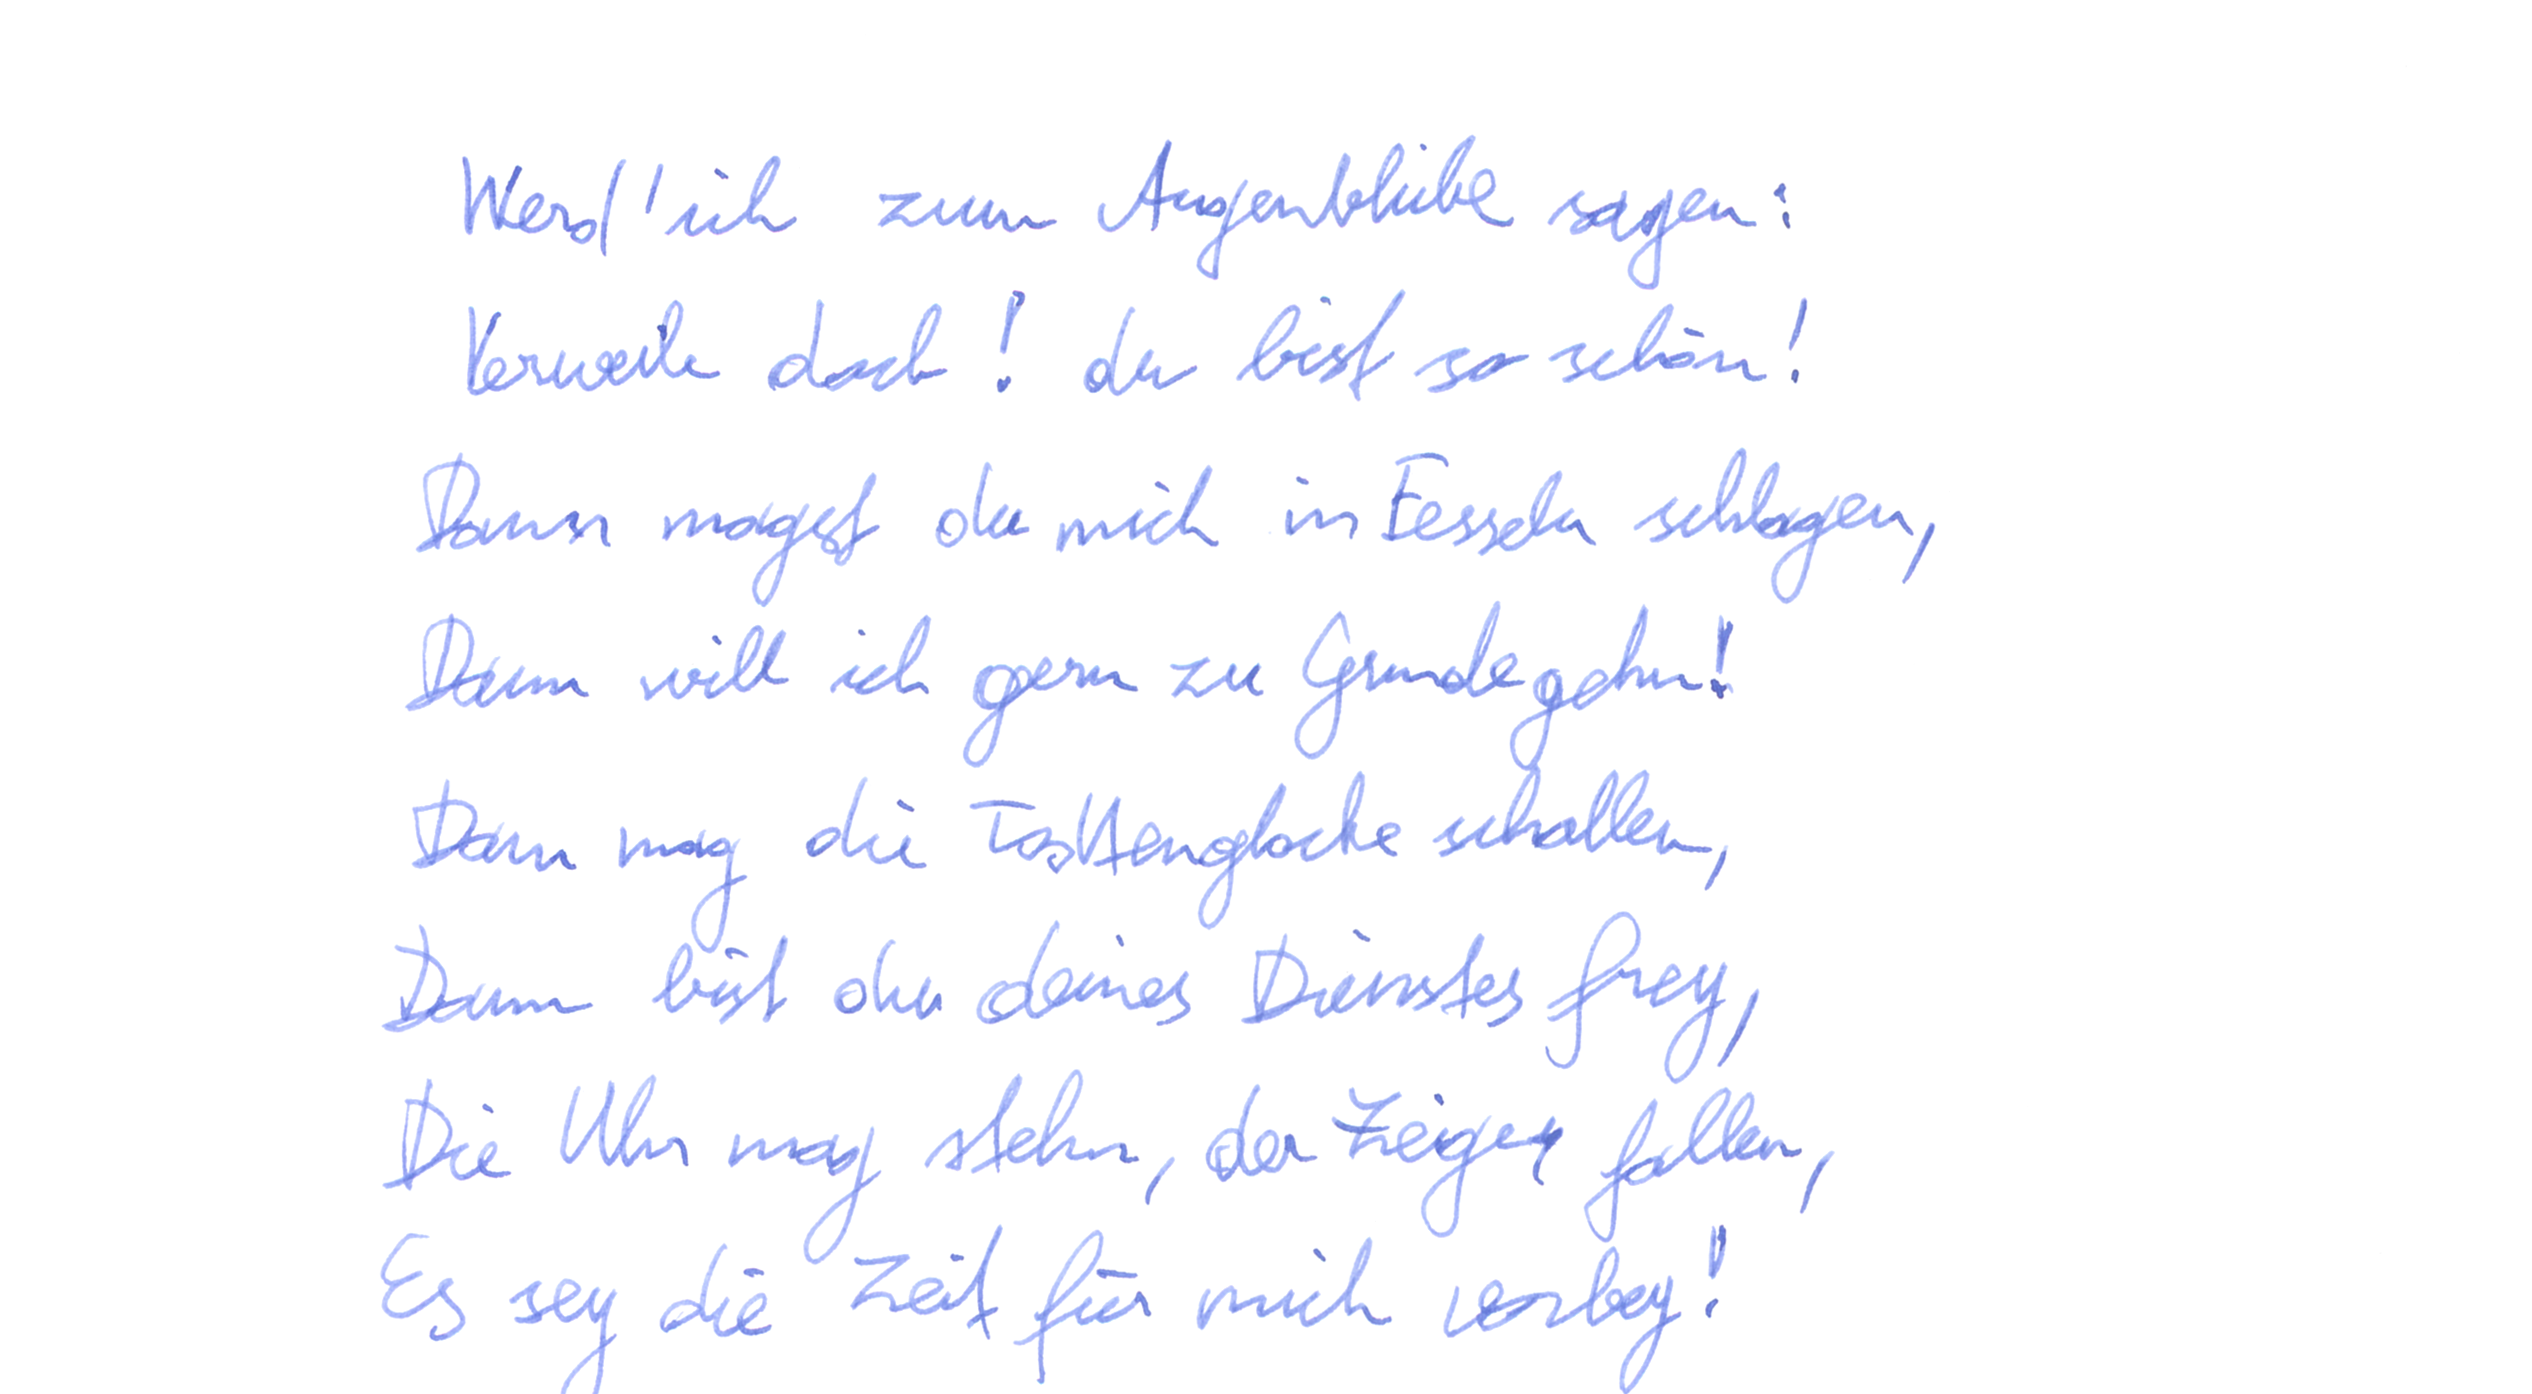 Werd' ich zum Augenblicke sagen:
Verweile doch! du bist so schön!
Dann magst du mich in Fesseln schlagen,
Dann will ich gern zu Grunde gehn!
Dann mag die Tosttenglocke schallen,
Dann bist du deines Dienstes frey,
Die Uhr mag stehn, der Zeiger fallen,
Es sey die Zeit für mich vorbey!